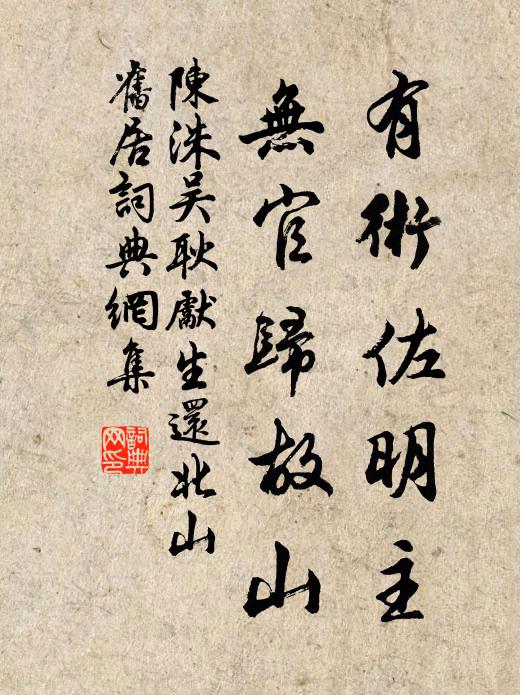 有術佐明主
無官歸故山
陳洙吴耿獻生還北山
舊居詞典網集
詞典
网印